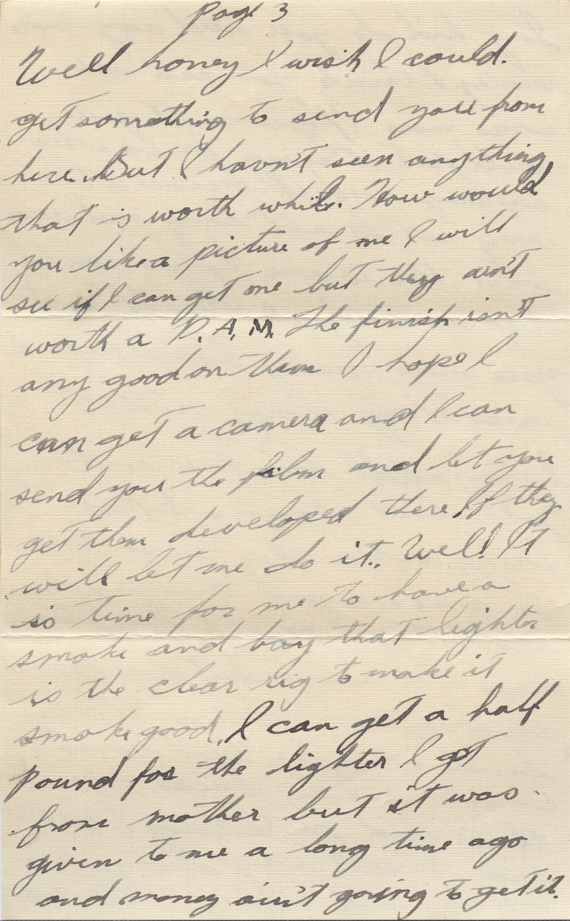 Page 3
Well honey I wish I could.
get something to send you from
here. But I havn't seen anything
that is worth while. How would
you like a picture of me I will
see if I can get one but they ain't
worth a D.A.M. The finish isn't
any good on them I hope I
can get a camera and I can
send you the film and let you
get them developed there If they
will let me do it. Well! It
is time for me to have a
smoke and boy that lighter
is the clear rig to make it
smoke good. I can get a half
pound for the lighter I got
from mother but it was
given to me a long time ago
and money ain't going to get it.